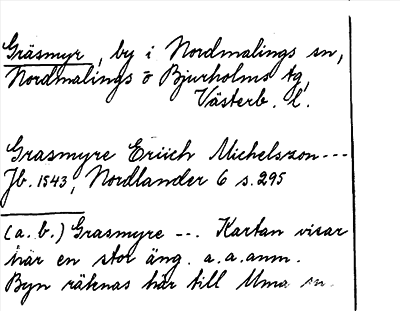 Gräsmyr, by i Nordmalings sn,
Nordmalings o Bjurholms tg,
Västerb. l.
Grasmyre Eriich Michelszon ---
Jb. 1543, Nordlander 6 s. 295
(a. b.) Grasmyre --- Kartan visar
här en stor äng. a.a. anm.
Byn räknas här till Uma sn.